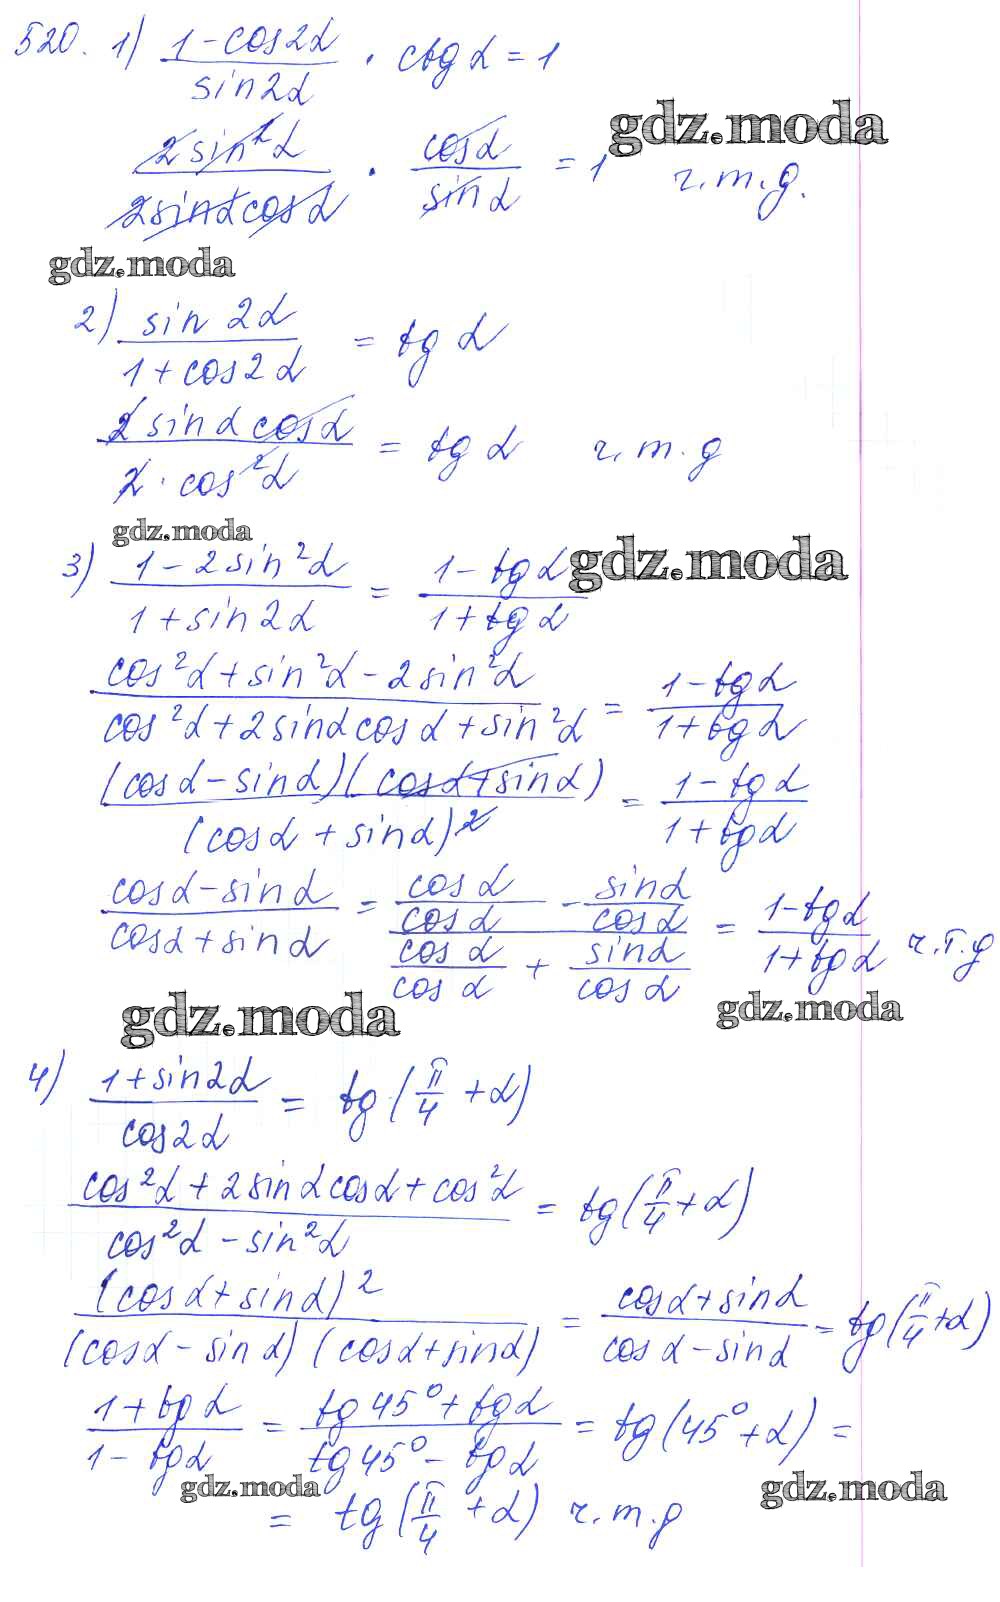 520. 1) (1-cos2α)/(sin2α) · ctg α = 1
(2sin²α)/(2sinα cosα) · (cosα)/(sinα) = 1 ч.т.д.
gdz.moda
gdz.moda
2) (sin 2α)/(1+cos2α) = tg α
(2 sinα cosα)/(2·cos²α) = tg α ч.т.д
gdz.moda
gdz.moda
3) (1-2sin²α)/(1+sin2α) = (1-tgα)/(1+tgα)
(cos²α+sin²α-2sin²α)/(cos²α+2sinαcosα+sin²α) = (1-tgα)/(1+tgα)
((cosα-sinα)(cosα+sinα))/((cosα+sinα)²) = (1-tgα)/(1+tgα)
(cosα-sinα)/(cosα+sinα) = (cosα/cosα - sinα/cosα)/(cosα/cosα + sinα/cosα) = (1-tgα)/(1+tgα) ч.т.д
gdz.moda
gdz.moda
4) (1+sin2α)/(cos2α) = tg(π/4+α)
(cos²α+2sinαcosα+cos²α)/(cos²α-sin²α) = tg(π/4+α)
((cosα+sinα)²)/((cosα-sinα)(cosα+sinα)) = (cosα+sinα)/(cosα-sinα) = tg(π/4+α)
(1+tgα)/(1-tgα) = (tg45°+tgα)/(tg45°-tgα) = tg(45°+α) =
gdz.moda
gdz.moda
= tg(π/4+α) ч.т.д